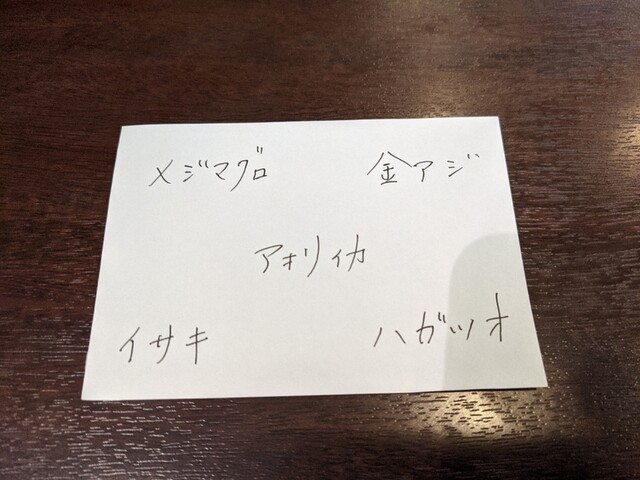 メジマグロ 金アジ
アオリイカ
イサキ ハガツオ